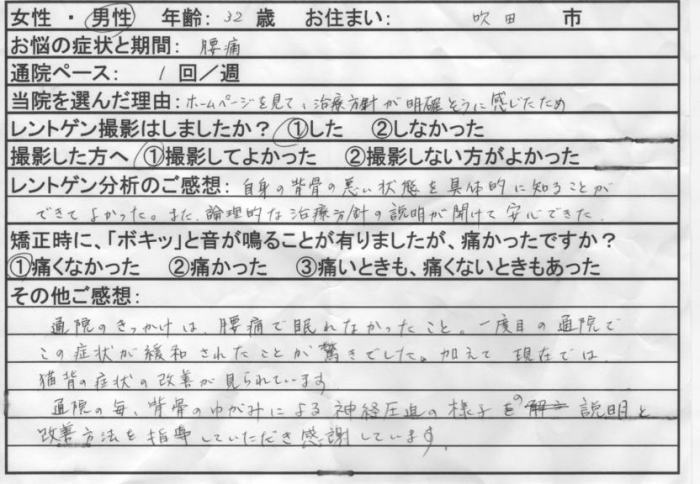 女性 ・ 男性　年齢: 32 歳　お住まい: 吹田 市
お悩の症状と期間: 腰痛
通院ペース: 1 回／週
当院を選んだ理由: ホームページを見て、治療方針が明確そうに感じたため
レントゲン撮影はしましたか？ ①した　②しなかった
撮影した方へ ①撮影してよかった　②撮影しない方がよかった
レントゲン分析のご感想: 自身の背骨の悪い状態を具体的に知ることが
できてよかった。また、論理的な治療方針の説明が聞けて安心できた。
矯正時に、「ボキッ」と音が鳴ることが有りましたが、痛かったですか？
①痛くなかった　②痛かった　③痛いときも、痛くないときもあった
その他ご感想:
通院のきっかけは、腰痛で眠れなかったこと。一度目の通院で
この症状が緩和されたことが驚きでした。加えて現在では、
猫背の症状の改善が見られています。
通院の毎、背骨のゆがみによる神経圧迫の様子の説明と
改善方法を指導していただき感謝しています。